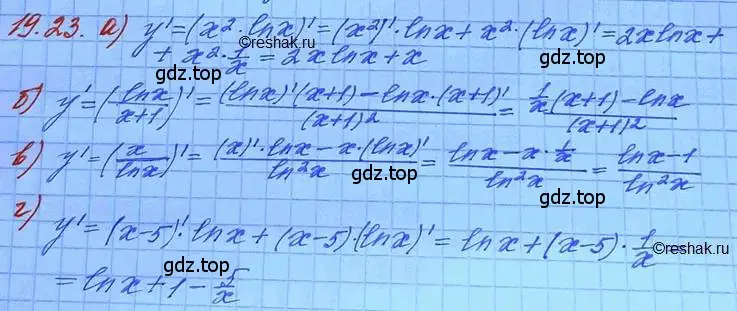 19.23. а) y' = (x² · lnx)' = (x²)' · lnx + x² · (lnx)' = 2x lnx +
+ x² · 1/x = 2x lnx + x
reshak.ru
gdz.top
gdz.top
б) y' = (lnx/(x+1))' = ((lnx)'(x+1) - lnx · (x+1)')/(x+1)² = (1/x (x+1) - lnx)/(x+1)²
gdz.top
gdz.top
в) y' = (x/lnx)' = ((x)' · lnx - x · (lnx)')/ln²x = (lnx - x · 1/x)/ln²x = (lnx - 1)/ln²x
gdz.top
gdz.top
г)
y' = (x-5)' · lnx + (x-5) · (lnx)' = lnx + (x-5) · 1/x
reshak.ru
gdz.top
gdz.top
= lnx + 1 - 5/x